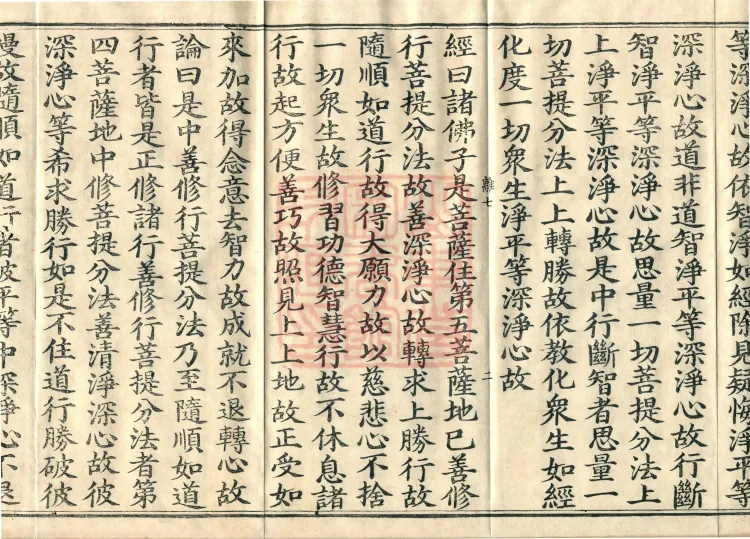 等深淨心故依智淨如經除見疑悔淨平等
深淨心故道非道智淨平等深淨心故行斷
智淨平等深淨心故思量一切菩提分法上
上淨平等深淨心故是中行斷智者思量一
切菩提分法上上轉勝故依教化衆生如經
化度一切衆生淨平等深淨心故
離七 二
經曰諸佛子是菩薩住第五菩薩地已善修
行菩提分法故善深淨心故轉求上勝行故
隨順如道行故得大願力故以慈悲心不捨
一切衆生故修習功德智慧行故不休息諸
行故起方便善巧故照見上上地故正受如
來加故得念意去智力故成就不退轉心故
論曰是中善修行菩提分法乃至隨順如道
行者皆是正修諸行善修行菩提分法者第
四菩薩地中修菩提分法善清淨深心故彼
深淨心等希求勝行如是不住道行勝破彼
慢故隨順如道行者彼平等中深淨心不退